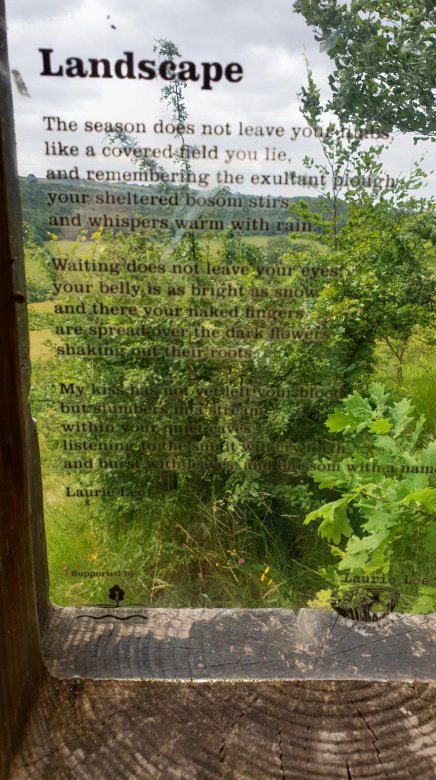 Landscape
The season does not leave your limbs
like a covered field you lie,
and remembering the exultant plough
your sheltered bosom stirs
and whispers warm with rain
Waiting does not leave your eyes
your belly is as bright as snow
and there your naked fingers
are spread over the dark flowers
shaking out their roots
My kiss has not yet left your blood
but slumbers in a stream
within your quiet caves
listening to the
and burst with leaves and blossom with a name
Laurie Lee
Supported by
GLOUCESTERSHIRE
Laurie Lee